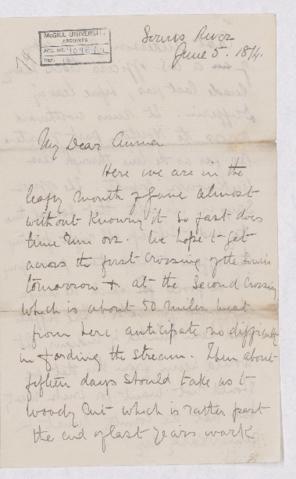 McGILL UNIVERSITY
ARCHIVES
ACC. NO.
REF.
Souris River
June 5. 1874.
My Dear Anna
Here we are in the
leafy month of June almost
without knowing it so fast does
time run on. We hope to get
across the first crossing of the Souris
tomorrow & at the Second Crossing
which is about 50 miles west
from here, anticipate no difficulty
in fording the stream. Then about
fifteen days should take us to
Woody Mt which is rather past
the end of last years work